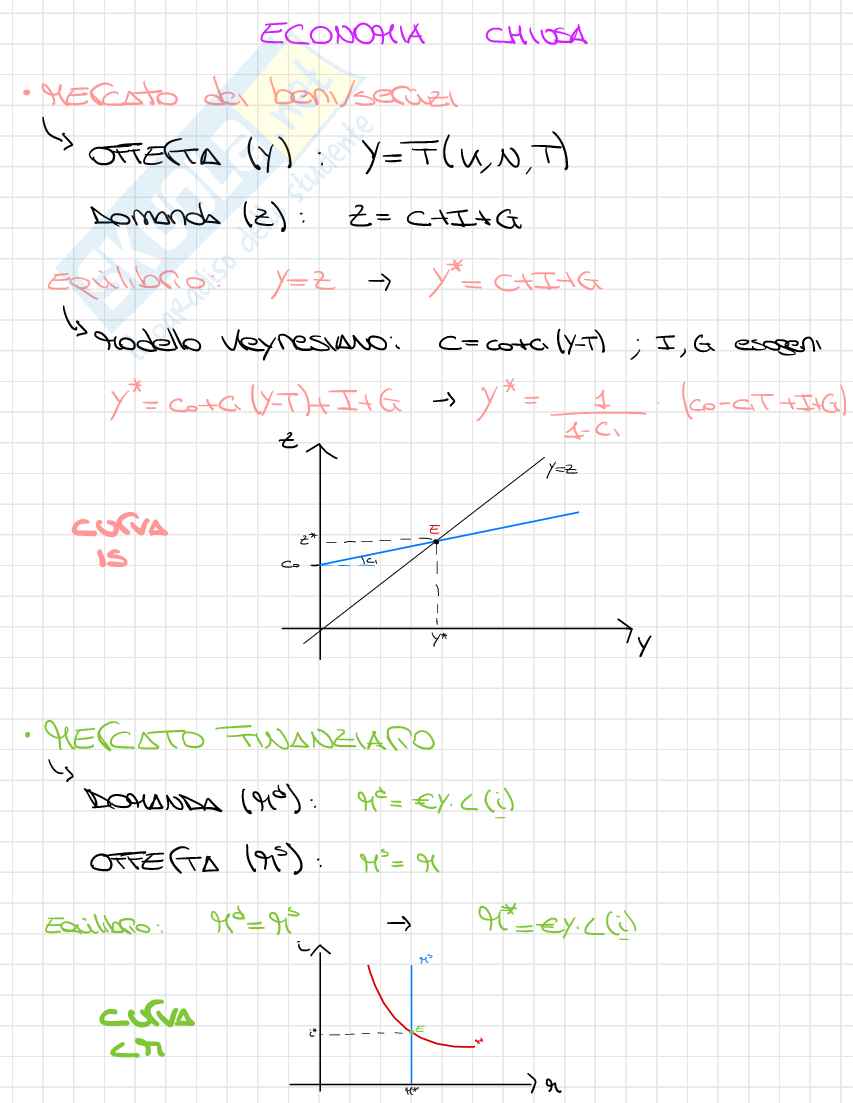 ECONOMIA CHIUSA
• MERCATO dei beni/servizi
↳ OFFERTA (Y) : Y=F(K,N,T)
DOMANDA (Z): Z= C+I+G
Equilibrio: Y=Z → Y*= C+I+G
↳ Modello Keynesiano: C=c0+c1(Y-T) ; I,G esogeni
Y*= c0+c1(Y-T)+I+G → Y*= 1/(1-c1) · (c0-c1T+I+G)
Z
Y=Z
CURVA
IS
E
Z*
c0
c1
Y*
Y
• MERCATO FINANZIARIO
↳ DOMANDA (Mᵈ): Mᵈ= €Y·L(i)
OFFERTA (Mˢ): Mˢ= M
Equilibrio: Mᵈ=Mˢ → M*=€Y·L(i)
i
Mˢ
CURVA
LM
i*
E
M*
M
EKUOLO
.net
il paradiso dello studente